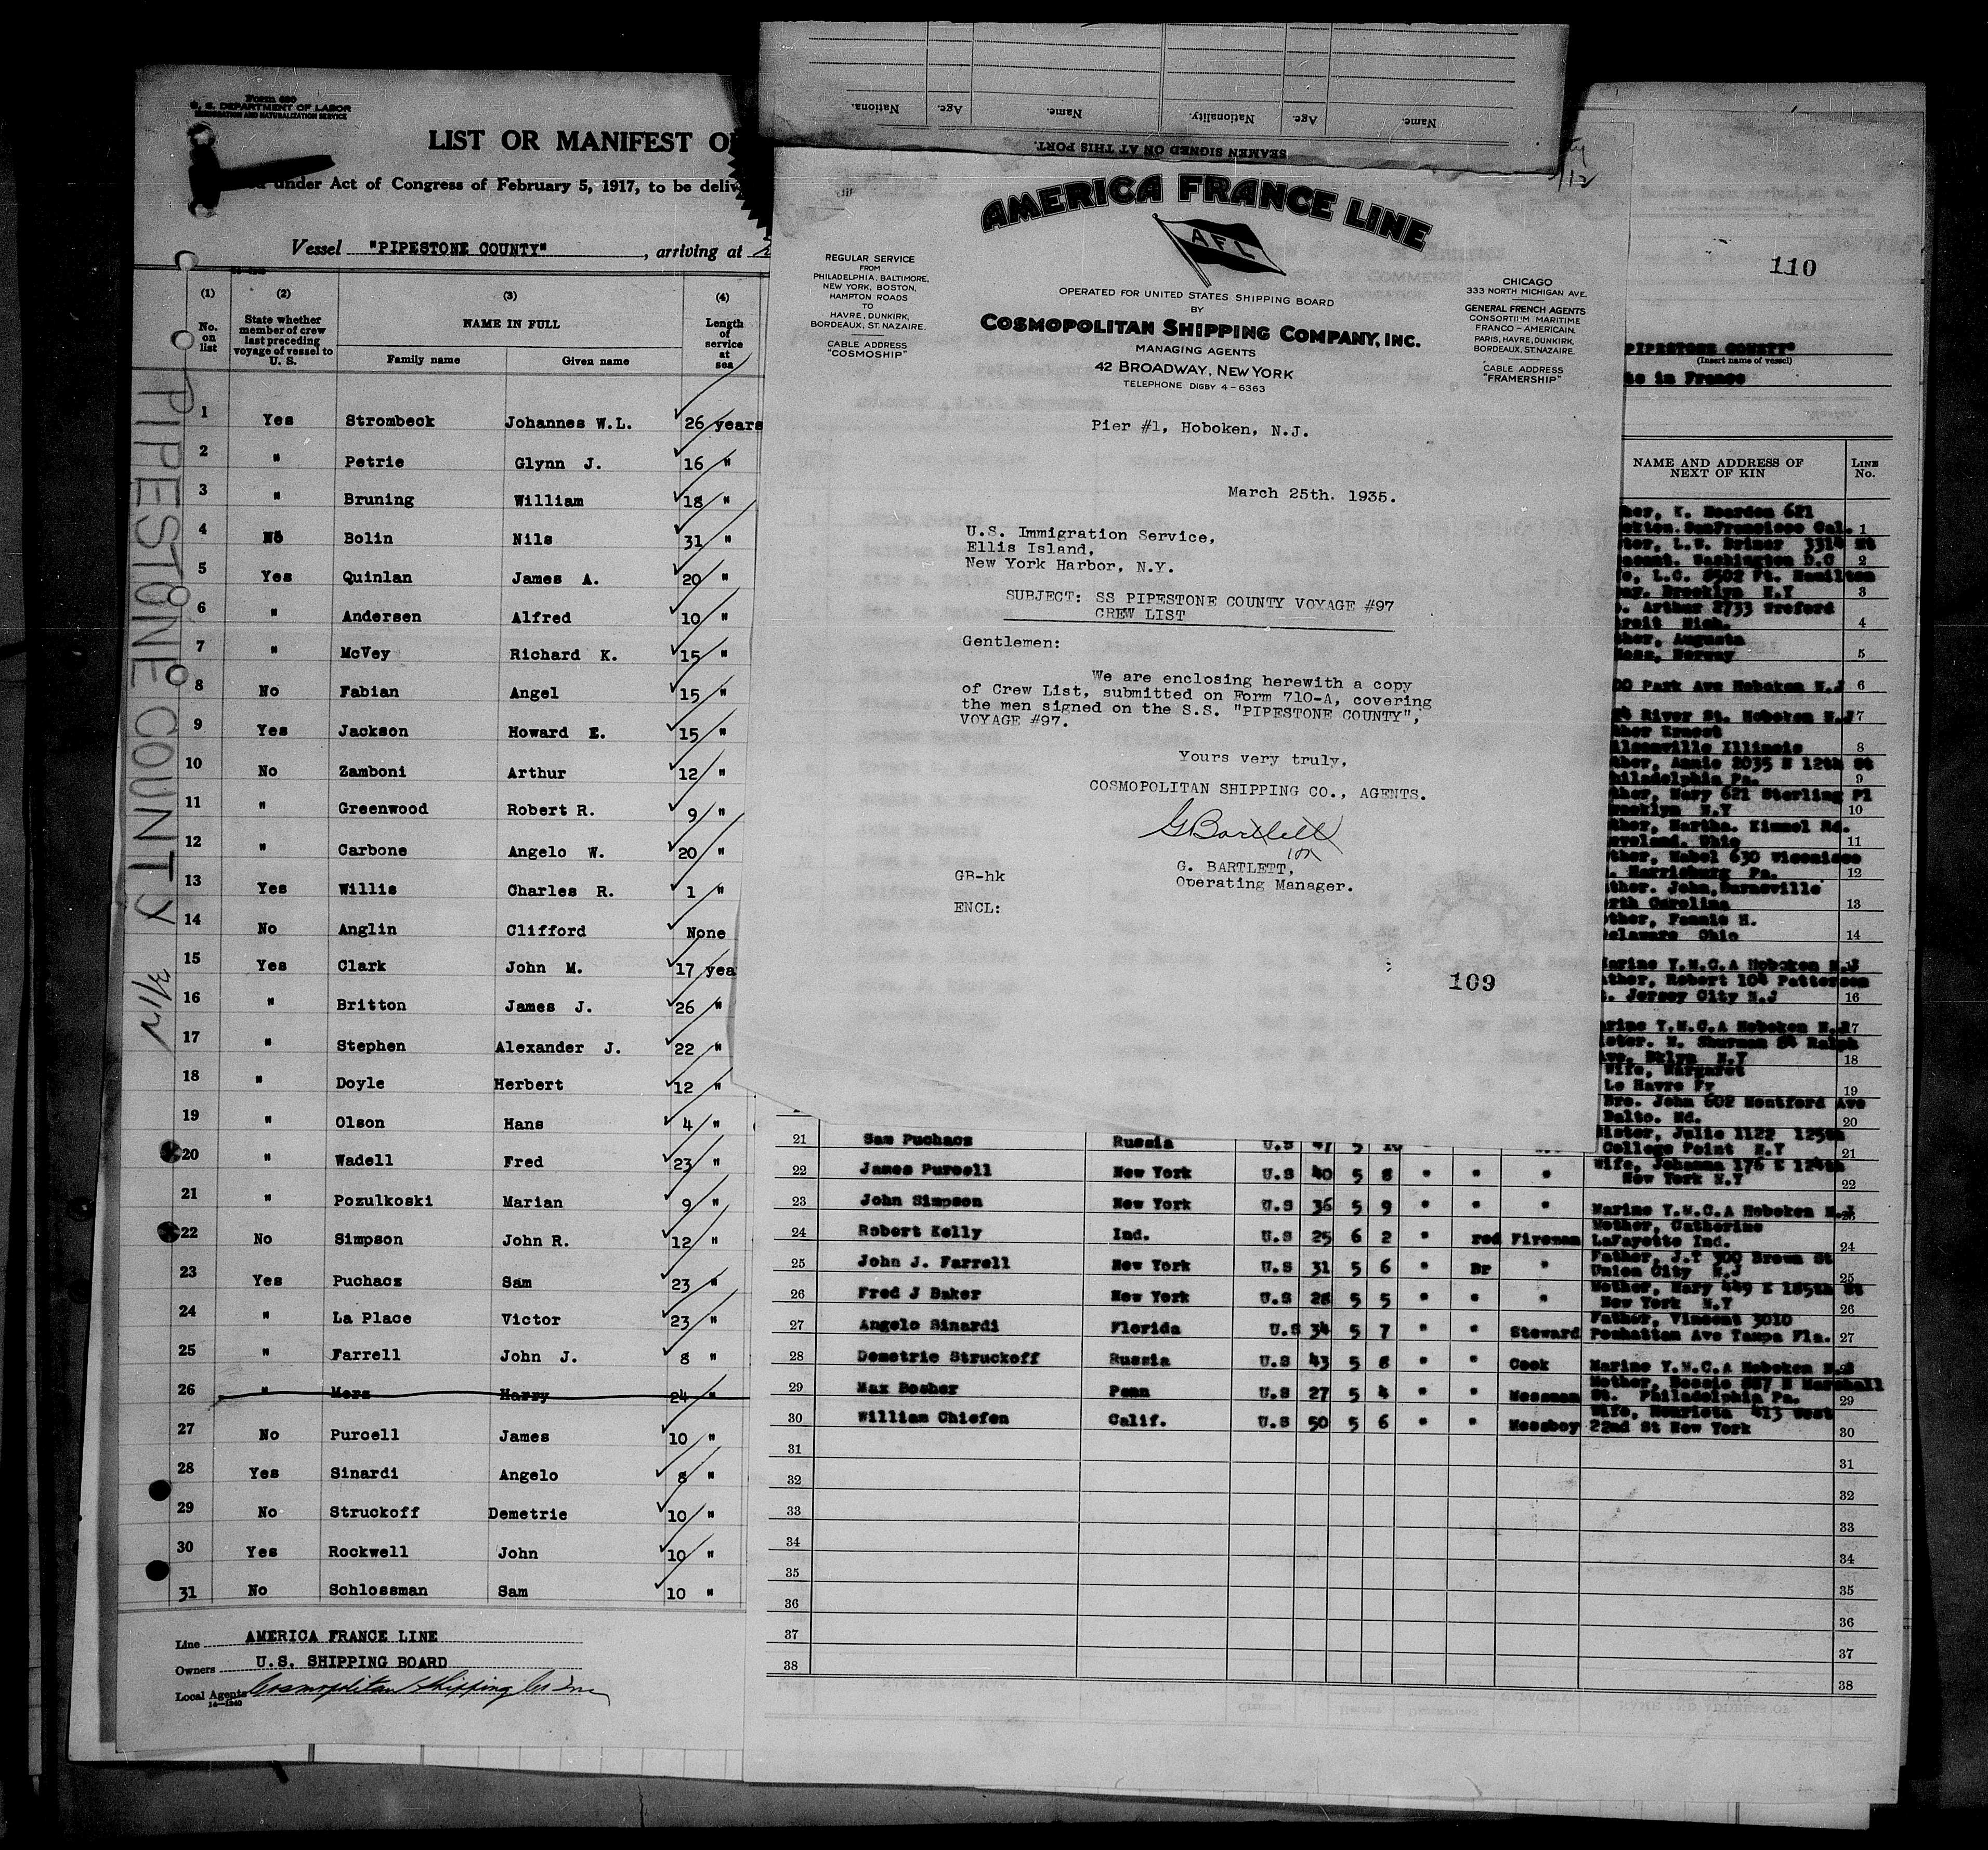 Form 680
U. S. DEPARTMENT OF LABOR
IMMIGRATION AND NATURALIZATION SERVICE
LIST OR MANIFEST O
under Act of Congress of February 5, 1917, to be deliv
Vessel "PIPESTONE COUNTY" , arriving at
(1) (2) (3) (4)
No. on list
State whether member of crew last preceding voyage of vessel to U. S.
NAME IN FULL
Family name Given name
Length of service at sea
1 Yes Strombeck Johannes W.L. 26 years
2 " Petrie Glynn J. 16 "
3 " Bruning William 18 "
4 No Bolin Nils 31 "
5 Yes Quinlan James A. 20 "
6 " Andersen Alfred 10 "
7 " McVey Richard K. 15 "
8 No Fabian Angel 15 "
9 Yes Jackson Howard E. 15 "
10 No Zamboni Arthur 12 "
11 " Greenwood Robert R. 9 "
12 " Carbone Angelo W. 20 "
13 Yes Willis Charles R. 1 "
14 No Anglin Clifford None
15 Yes Clark John M. 17 yea
16 " Britton James J. 26 "
17 " Stephen Alexander J. 22 "
18 " Doyle Herbert 12 "
19 " Olson Hans 4 "
20 " Wadell Fred 23 "
21 " Pozulkoski Marian 9 "
22 No Simpson John R. 12 "
23 Yes Puchacz Sam 23 "
24 " La Place Victor 23 "
25 " Farrell John J. 8 "
26 " Merz Harry 24 "
27 No Purcell James 10 "
28 Yes Sinardi Angelo 8 "
29 No Struckoff Demetrie 10 "
30 Yes Rockwell John 10 "
31 No Schlossman Sam 10 "
Line AMERICA FRANCE LINE
Owners U.S. SHIPPING BOARD
Local Agents Cosmopolitan Shipping Co Inc
PIPESTONE COUNTY
Name. Age. Nationality. Name. Age. Nationa.
SEAMEN SIGNED ON AT THIS PORT.
AMERICA FRANCE LINE
AFL
REGULAR SERVICE
FROM
PHILADELPHIA, BALTIMORE,
NEW YORK, BOSTON,
HAMPTON ROADS
TO
HAVRE, DUNKIRK,
BORDEAUX, ST. NAZAIRE.
CABLE ADDRESS
"COSMOSHIP"
OPERATED FOR UNITED STATES SHIPPING BOARD
BY
COSMOPOLITAN SHIPPING COMPANY, INC.
MANAGING AGENTS
42 BROADWAY, NEW YORK
TELEPHONE DIGBY 4-6363
CHICAGO
333 NORTH MICHIGAN AVE.
GENERAL FRENCH AGENTS
CONSORTIUM MARITIME
FRANCO-AMERICAIN.
PARIS, HAVRE, DUNKIRK,
BORDEAUX, ST. NAZAIRE.
CABLE ADDRESS
"FRAMERSHIP"
Pier #1, Hoboken, N.J.
March 25th. 1935.
U.S. Immigration Service,
Ellis Island,
New York Harbor, N.Y.
SUBJECT: SS PIPESTONE COUNTY VOYAGE #97
CREW LIST
Gentlemen:
We are enclosing herewith a copy
of Crew List, submitted on Form 710-A, covering
the men signed on the S.S. "PIPESTONE COUNTY",
VOYAGE #97.
Yours very truly,
COSMOPOLITAN SHIPPING CO., AGENTS.
G Bartlett
G. BARTLETT,
Operating Manager.
GB-hk
ENCL:
109
110
PIPESTONE COUNTY"
(Insert name of vessel)
in France
Master.
NAME AND ADDRESS OF NEXT OF KIN
LINE No.
her, K. Bearden 621
SanFrancisco Cal. 1
ter, L.W. Briner 3314
Washington D.C 2
L.C. 8502 Ft. Hamilton
Brooklyn N.Y 3
Arthur 2733 Wreford
Mich. 4
her, Augusta
Norway 5
00 Park Ave Hoboken N.J 6
River St. Hoboken N.J 7
her Ernest
Illinois 8
ther, Annie 2035 N 12th St
hiladelphia Pa. 9
ther, Mary 621 Sterling Pl
ooklyn N.Y 10
ther, Martha. Kimmel Rd.
eveland. Ohio 11
ther, Mabel 630
Harrisburg Pa. 12
ther. John, Barnsville
rth Carolina 13
ther, Fannie M.
elaware Ohio 14
arine Y.M.C.A Hoboken N.J
ather, Robert 104 Patterson
. Jersey City N.J 16
rine Y.M.C.A Hoboken N.J 17
ister. N. Shurman 84 Ralph
Ave. Bklyn N.Y 18
Wife, Margaret
Le Havre Fr 19
Bro. John 602 Montford Ave
Balto. Md. 20
21 Sam Puchacs Russia U.S 47 5 10 " Sister, Julie 1122 125th
College Point N.Y 21
22 James Purcell New York U.S 40 5 8 " " " Wife, Johanna 176 E 124th
New York N.Y 22
23 John Simpson New York U.S 36 5 9 " " " Marine Y.M.C.A Hoboken N.J
24 Robert Kelly Ind. U.S 25 6 2 " red Fireman Mother, Catherine
LaFayette Ind. 24
25 John J. Farrell New York U.S 31 5 6 " Br " Father, J.T 300 Brown St
Union City N.J 25
26 Fred J Baker New York U.S 28 5 5 " " " Mother, Mary 449 E 185th St
New York N.Y 26
27 Angelo Sinardi Florida U.S 34 5 7 " " Steward Father, Vincent 3010
Powhattan Ave Tampa Fla. 27
28 Demetrie Struckoff Russia U.S 43 5 8 " " Cook Marine Y.M.C.A Hoboken N.J
29 Max Bosher Penn U.S 27 5 4 " " Messman Mother, Bessie 857 N Marshall
St. Philadelphia Pa. 29
30 William Chiefen Calif. U.S 50 5 6 " " Messboy Wife, Henrieta 413 West
22nd St New York 30
31 31
32 32
33 33
34 34
35 35
36 36
37 37
38 38